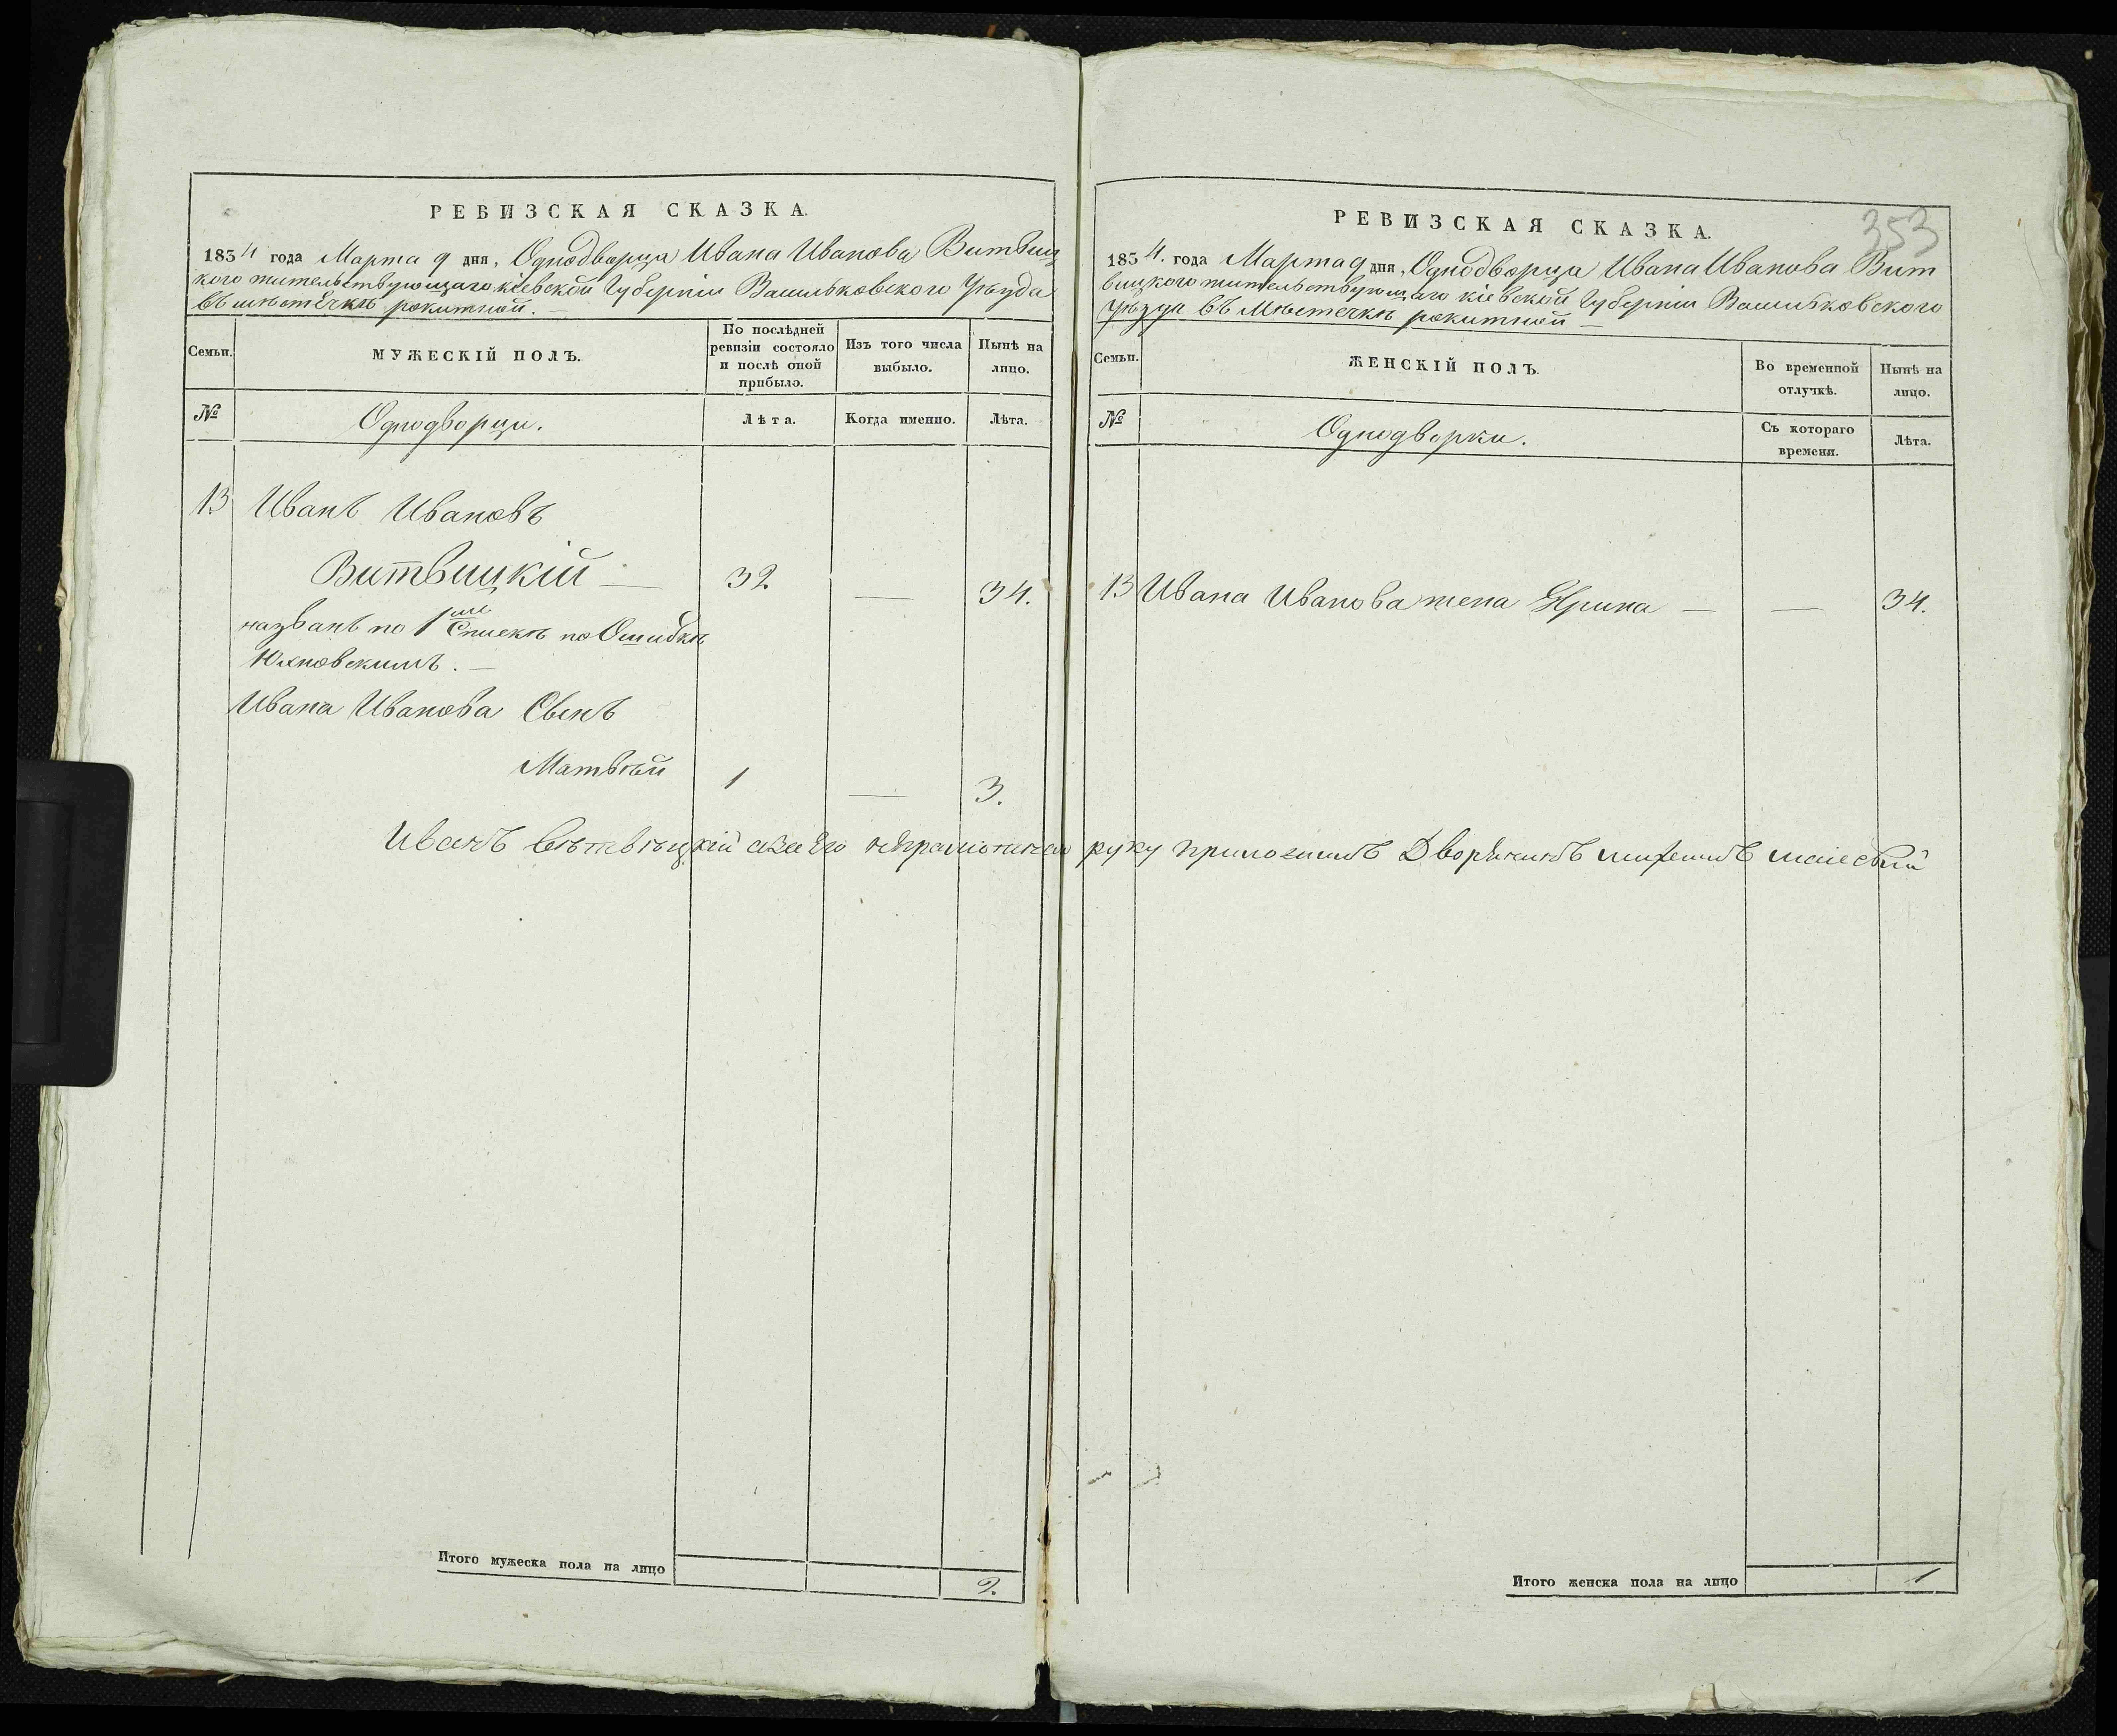 РЕВИЗСКАЯ СКАЗКА.
1834 года Марта 9 дня, Однодворца Ивана Иванова Витвиц
кого жительствующаго кіевской Губерніи Васильковского Уѣзда
въ мѣстечкѣ рокитной. —
Семьи.
МУЖЕСКІЙ ПОЛЪ.
По послѣдней
ревизіи состояло
и послѣ оной
прибыло.
Изъ того числа
выбыло.
Нынѣ на
лицо.
№
Однодворцы.
Лѣта.
Когда именно.
Лѣта.
13 Иванъ Ивановъ
Витвицкій — 32 — 34.
названъ по 1й Спискѣ по Ошибкѣ
Юхновскимъ. —
Ивана Иванова Сынъ
Матвѣй 1 — 3.
Иванъ Вѣтвѣцкій а за Его неграмотнаго руку приложилъ Дворянинъ
Итого мужеска пола на лицо 2.
353
РЕВИЗСКАЯ СКАЗКА.
1834. года Марта 9 дня, Однодворца Ивана Иванова Вит
вицкого жительствующаго кіевской Губерніи Васильковского
Уѣзда въ Мѣстечкѣ рокитной —
Семьи.
ЖЕНСКІЙ ПОЛЪ.
Во временной
отлучкѣ.
Нынѣ на
лицо.
№
Однодворки.
Съ котораго
времени.
Лѣта.
13 Ивана Иванова жена Ярина — — 34.
Итого женска пола на лицо 1